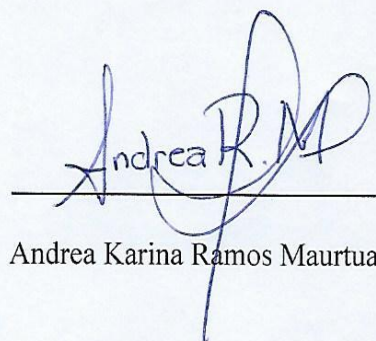 Andrea R. MP
Andrea Karina Ramos Maurtua